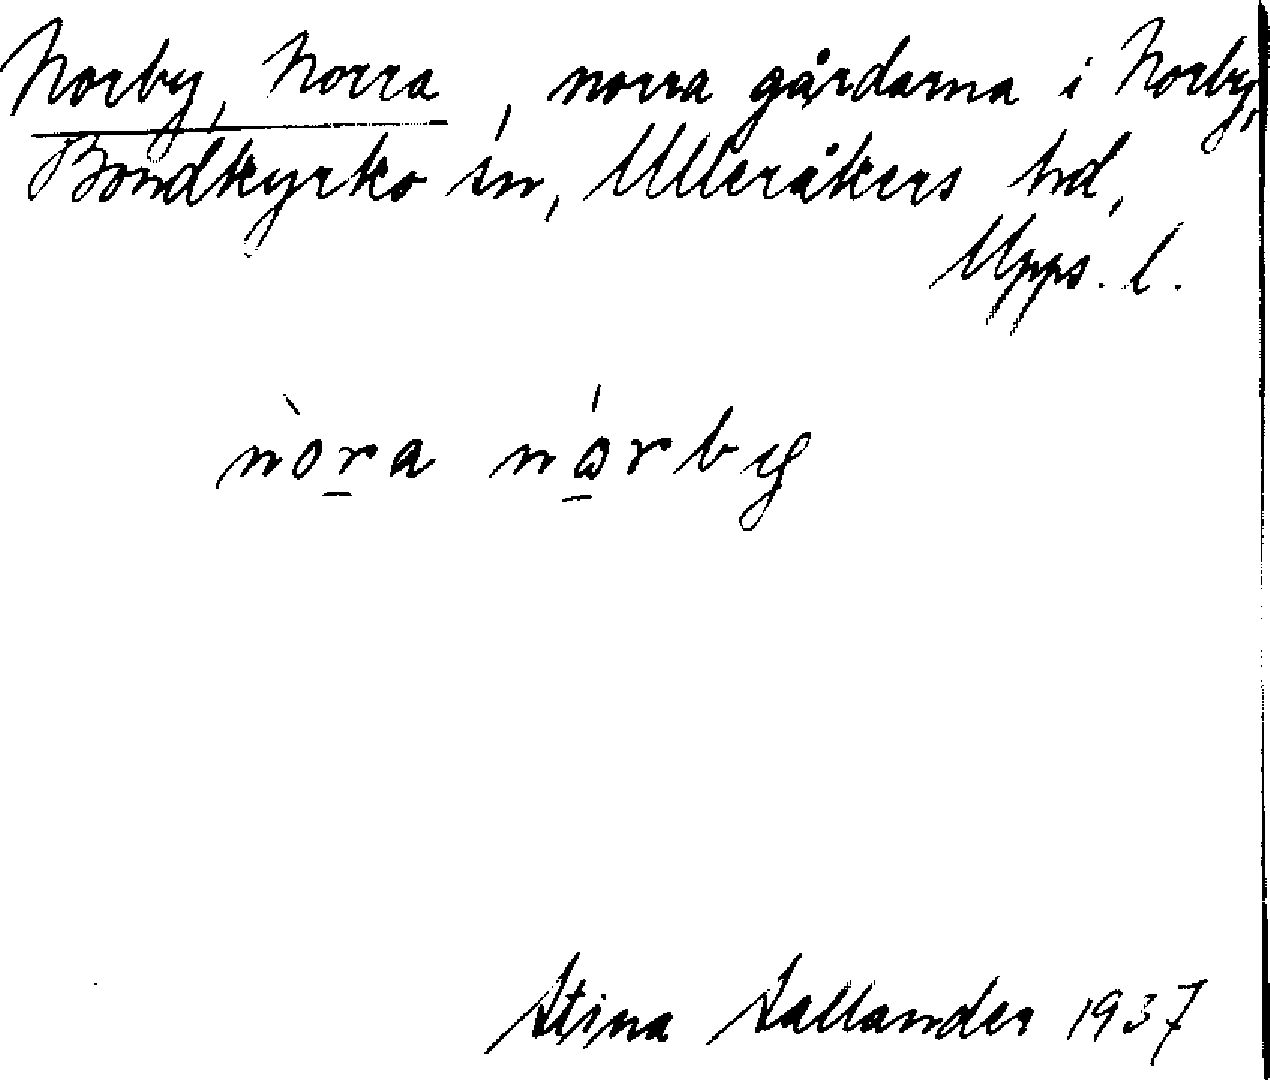 Norby, Norra, norra gårdarna i Norby,
Bondkyrko sn, Ulleråkers hd,
Upps. l.
nòra nórby
Stina Sallander 1937